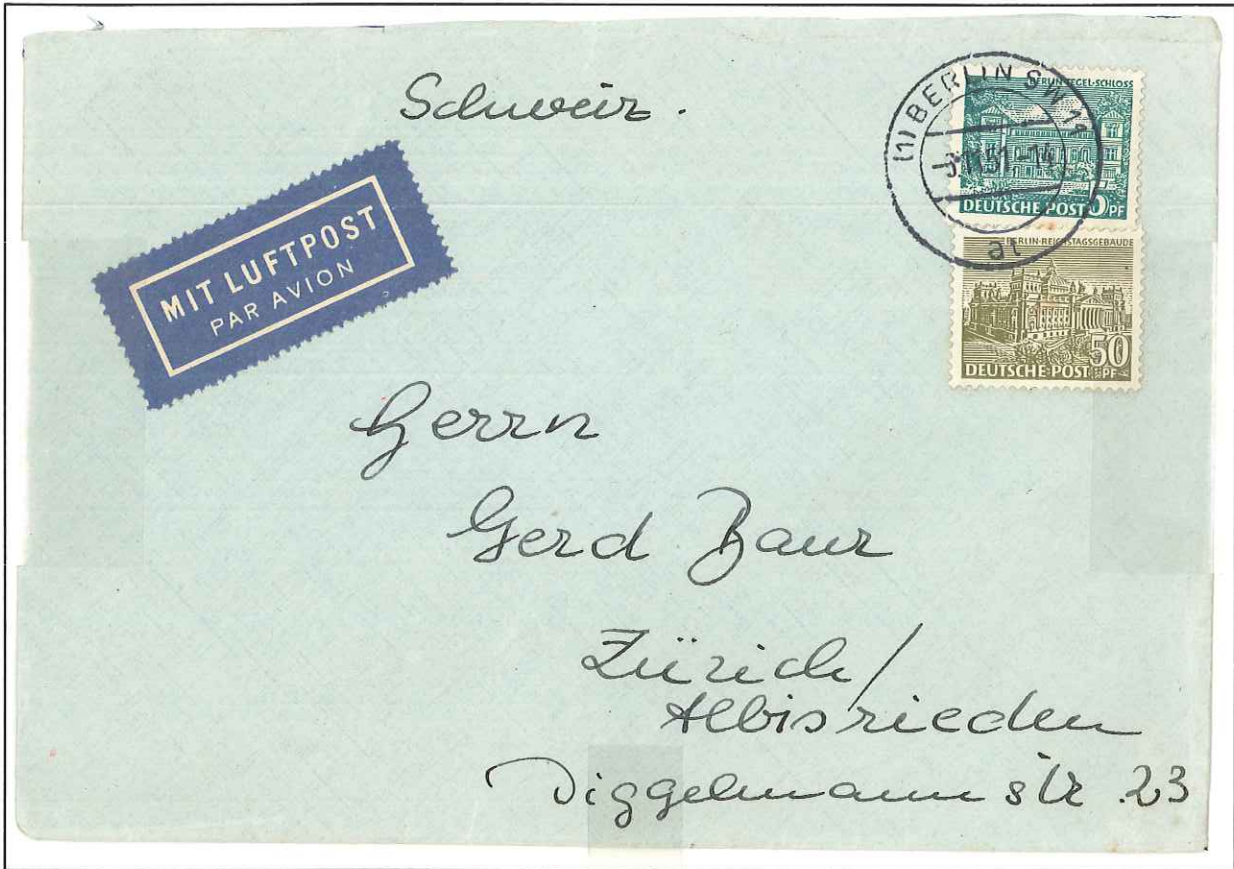 Schweiz.
(1) BERLIN SW 11
51-14
at
BERLIN-TEGEL-SCHLOSS
DEUTSCHE POST PF
BERLIN-REICHSTAGSGEBÄUDE
50
DEUTSCHE POST PF
MIT LUFTPOST
PAR AVION
Herrn
Gerd Baur
Zürich/
Albisrieden
Diggelmannstr. 23